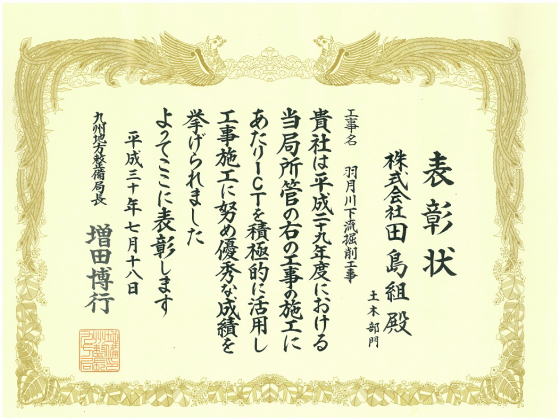 表彰状
土木部門
株式会社田島組殿
工事名 羽月川下流掘削工事
貴社は平成二十九年度における
当局所管の右の工事の施工に
あたりICTを積極的に活用し
工事施工に努め優秀な成績を
挙げられました
よってここに表彰します
平成三十年七月十八日
九州地方整備局長
増田博行